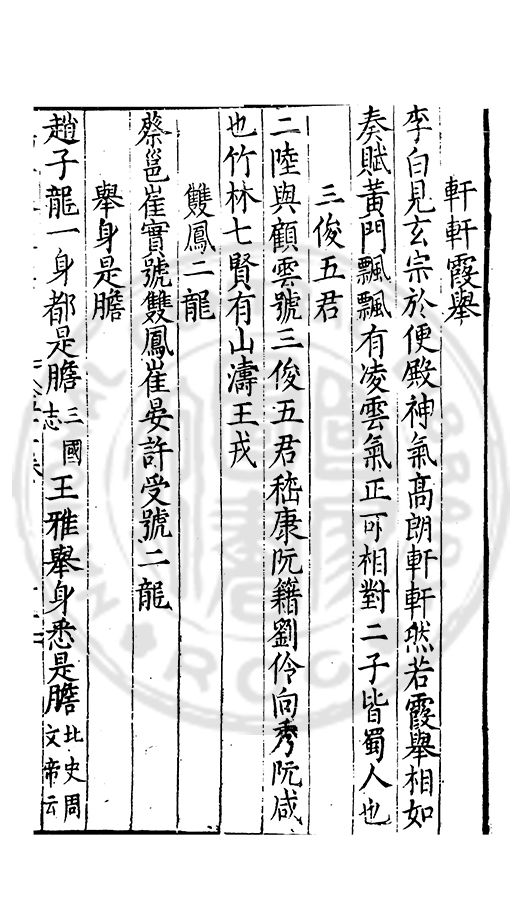 軒軒霞舉
李白見玄宗於便殿神氣高朗軒軒然若霞舉相如
奏賦黃門飄飄有凌雲氣正可相對二子皆蜀人也
三俊五君
二陸與顧雲號三俊五君嵇康阮籍劉伶向秀阮咸
也竹林七賢有山濤王戎
雙鳳二龍
蔡邕崔實號雙鳳崔晏許受號二龍
舉身是膽
趙子龍一身都是膽三國志王雅舉身悉是膽北史周文帝云